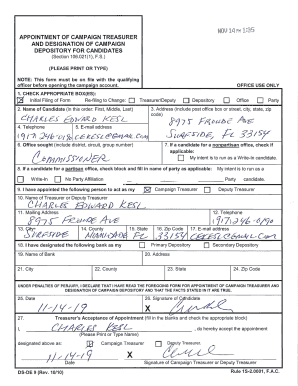 NOV 14 PM 1:35
APPOINTMENT OF CAMPAIGN TREASURER
AND DESIGNATION OF CAMPAIGN
DEPOSITORY FOR CANDIDATES
(Section 106.021(1), F.S.)
(PLEASE PRINT OR TYPE)
NOTE: This form must be on file with the qualifying
officer before opening the campaign account.
OFFICE USE ONLY
1. CHECK APPROPRIATE BOX(ES):
Initial Filing of Form Re-filing to Change: Treasurer/Deputy Depository Office Party
2. Name of Candidate (in this order: First, Middle, Last)
CHARLES EDWARD KESL
3. Address (include post office box or street, city, state, zip
code)
8975 FROUDE AVE
SURFSIDE, FL 33154
4. Telephone
5. E-mail address
6. Office sought (include district, circuit, group number)
COMMISSIONER
7. If a candidate for a nonpartisan office, check if
applicable:
My intent is to run as a Write-In candidate.
8. If a candidate for a partisan office, check block and fill in name of party as applicable: My intent is to run as a
Write-In No Party Affiliation Party candidate.
9. I have appointed the following person to act as my Campaign Treasurer Deputy Treasurer
10. Name of Treasurer or Deputy Treasurer
CHARLES EDWARD KESL
11. Mailing Address
8975 FROUDE AVE
12. Telephone
13. City
SURFSIDE
14. County
15. State
FL
16. Zip Code
33154
17. E-mail address
18. I have designated the following bank as my Primary Depository Secondary Depository
19. Name of Bank
20. Address
21. City
22. County
23. State
24. Zip Code
UNDER PENALTIES OF PERJURY, I DECLARE THAT I HAVE READ THE FOREGOING FORM FOR APPOINTMENT OF CAMPAIGN TREASURER AND
DESIGNATION OF CAMPAIGN DEPOSITORY AND THAT THE FACTS STATED IN IT ARE TRUE.
25. Date
11-14-19
26. Signature of Candidate
X
27. Treasurer's Acceptance of Appointment (fill in the blanks and check the appropriate block)
I, CHARLES KESL , do hereby accept the appointment
(Please Print or Type Name)
designated above as: Campaign Treasurer Deputy Treasurer.
11-14-19
X
Date
Signature of Campaign Treasurer or Deputy Treasurer
DS-DE 9 (Rev. 10/10)
Rule 1S-2.0001, F.A.C.